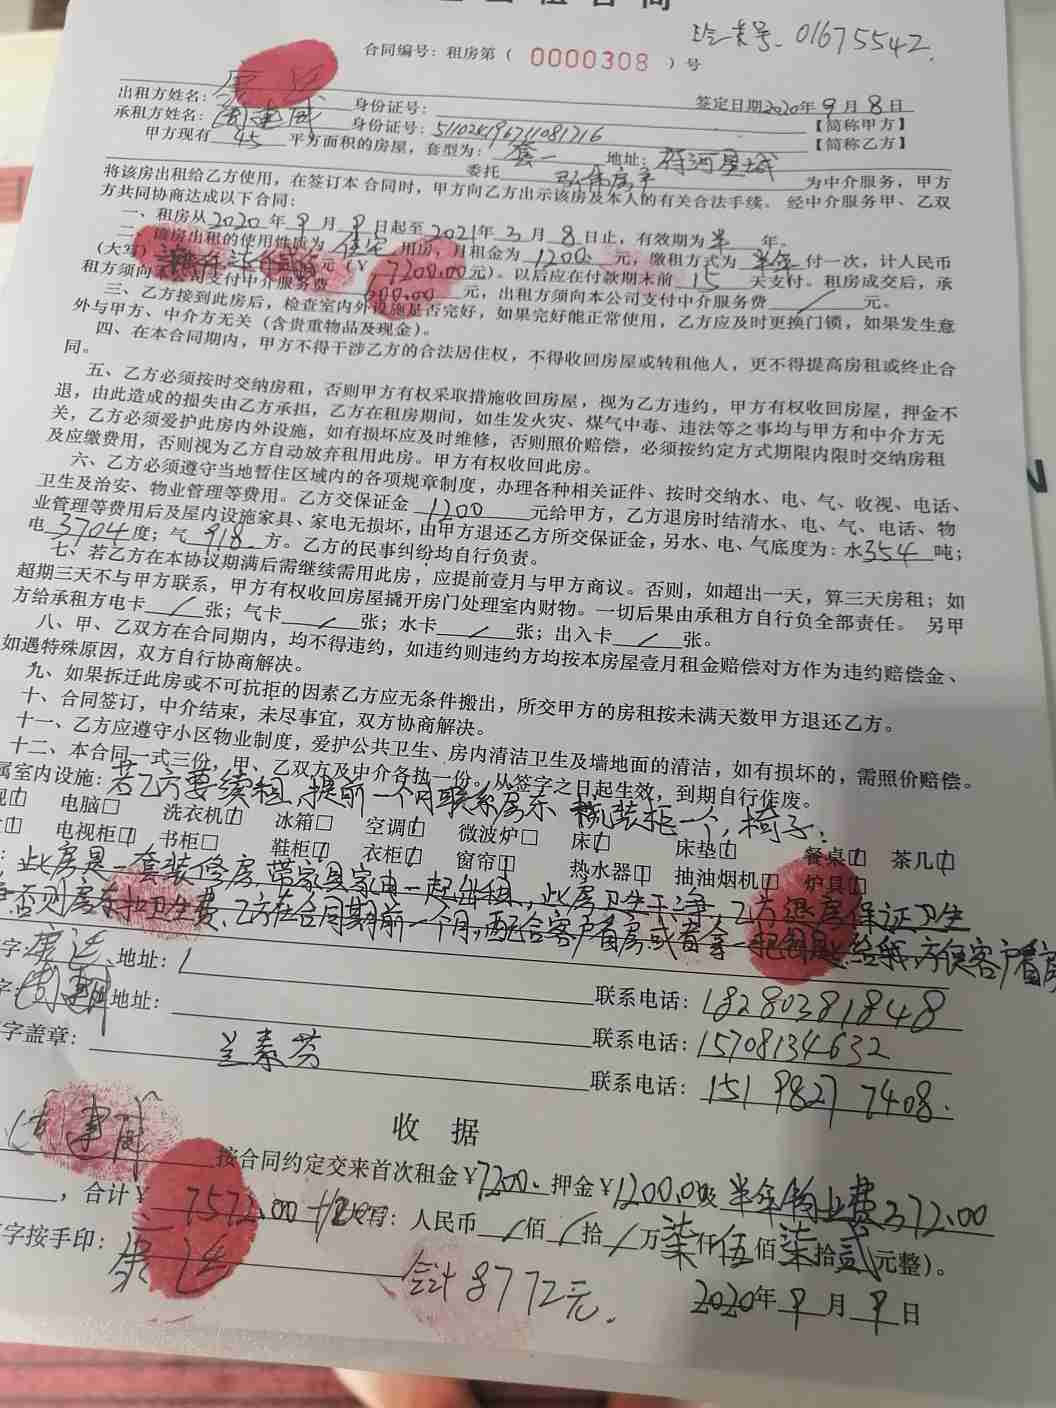 合同编号：租房第（ 0000308 ）号
01675542.
出租方姓名： 身份证号： 签定日期2020年9月8日
承租方姓名：周建威 身份证号：511028196711081716 【简称甲方】
甲方现有 45 平方面积的房屋，套型为：套一 地址：府河星城 【简称乙方】
委托 为中介服务，甲方
将该房出租给乙方使用，在签订本合同时，甲方向乙方出示该房及本人的有关合法手续。经中介服务甲、乙双
方共同协商达成以下合同：
一、租房从2020年9月9日起至2021年3月8日止，有效期为半年。
二、该房出租的使用性质为 住宅 用房，月租金为1200元，缴租方式为 半年 付一次，计人民币
（大写） 元（￥7200.00元）。以后应在付款期末前 15 天支付。租房成交后，承
租方须向 公司支付中介服务费 600.00 元，出租方须向本公司支付中介服务费 / 元。
三、乙方接到此房后，检查室内外设施是否完好，如果完好能正常使用，乙方应及时更换门锁，如果发生意
外与甲方、中介方无关（含贵重物品及现金）。
四、在本合同期内，甲方不得干涉乙方的合法居住权，不得收回房屋或转租他人，更不得提高房租或终止合
同。
五、乙方必须按时交纳房租，否则甲方有权采取措施收回房屋，视为乙方违约，甲方有权收回房屋，押金不
退，由此造成的损失由乙方承担，乙方在租房期间，如生发火灾、煤气中毒、违法等之事均与甲方和中介方无
关，乙方必须爱护此房内外设施，如有损坏应及时维修，否则照价赔偿，必须按约定方式期限内限时交纳房租
及应缴费用，否则视为乙方自动放弃租用此房。甲方有权收回此房。
六、乙方必须遵守当地暂住区域内的各项规章制度，办理各种相关证件、按时交纳水、电、气、收视、电话、
卫生及治安、物业管理等费用。乙方交保证金 1200 元给甲方，乙方退房时结清水、电、气、电话、物
业管理等费用后及屋内设施家具、家电无损坏，由甲方退还乙方所交保证金，另水、电、气底度为：水354吨；
电3704度；气918方。乙方的民事纠纷均自行负责。
七、若乙方在本协议期满后需继续需用此房，应提前壹月与甲方商议。否则，如超出一天，算三天房租；如
超期三天不与甲方联系，甲方有权收回房屋撬开房门处理室内财物。一切后果由承租方自行负全部责任。另甲
方给承租方电卡 / 张；气卡 / 张；水卡 / 张；出入卡 / 张。
八、甲、乙双方在合同期内，均不得违约，如违约则违约方均按本房屋壹月租金赔偿对方作为违约赔偿金、
如遇特殊原因，双方自行协商解决。
九、如果拆迁此房或不可抗拒的因素乙方应无条件搬出，所交甲方的房租按未满天数甲方退还乙方。
十、合同签订，中介结束，未尽事宜，双方协商解决。
十一、乙方应遵守小区物业制度，爱护公共卫生、房内清洁卫生及墙地面的清洁，如有损坏的，需照价赔偿。
十二、本合同一式三份，甲、乙双方及中介各执一份。从签字之日起生效，到期自行作废。
属室内设施：若乙方要续租，提前一个月联系房东 装柜一个，椅子：
视□ 电脑□ 洗衣机□ 冰箱□ 空调□ 微波炉□ 床□ 床垫□ 餐桌□ 茶几□
□ 电视柜□ 书柜□ 鞋柜□ 衣柜□ 窗帘□ 热水器□ 抽油烟机□ 炉具□
：此房是一套装修房，带家具家电一起出租，此房卫生干净，乙方退房保证卫生
否则房东扣卫生费，乙方在合同期前一个月，配合客户看房或者拿一把钥匙给我，方便客户看房
字： 地址： 联系电话：18280381848
字：周建威 地址： 联系电话：15708134632
字盖章：兰素芬 联系电话：15198277408.
收 据
周建威 按合同约定交来首次租金￥7200. 押金￥1200.00及 半年物业费372.00
，合计￥7572.00 +1200 写：人民币 / 佰 / 拾 / 万 柒 仟 伍 佰 柒 拾 贰 元整）。
字按手印： 合计8772元. 2020年9月9日